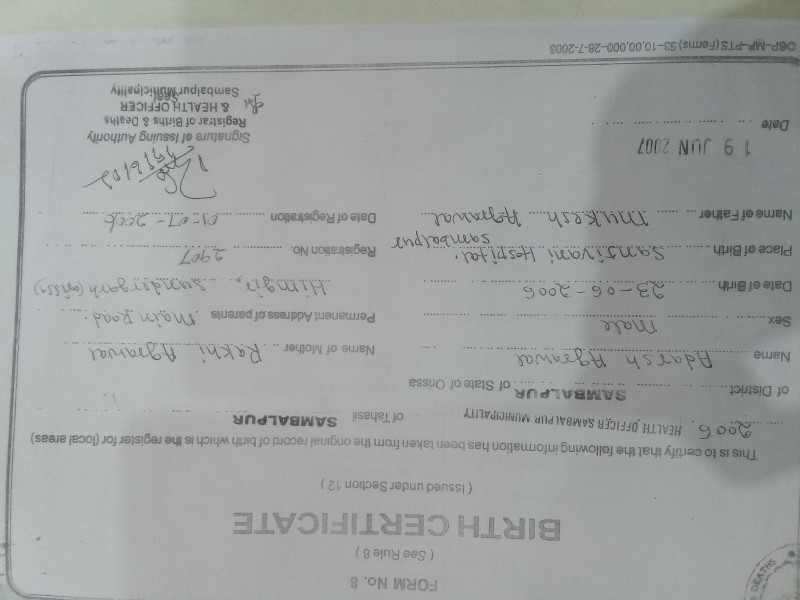 FORM No. 8
( See Rule 8 )
BIRTH CERTIFICATE
( Issued under Section 12 )
This is to certify that the following information has been taken from the original record of birth which is the register for (local areas)
2006. HEALTH OFFICER SAMBALPUR MUNICIPALITY of Tahasil SAMBALPUR
of District SAMBALPUR of State of Orissa
Name Adarsh Agrawal Name of Mother Rakhi Agrawal
Sex Male Permanent Address of parents Main Road.
Date of Birth 23-06-2006 Himgir, Sundergarh (orissa)
Place of Birth Sanjivani Hospital, Sambalpur Registration No. 2907
Name of Father Mukesh Agrawal Date of Registration 01-07-2006
19 JUN 2007
Date
Signature of Issuing Authority
Registrar of Births & Deaths
& HEALTH OFFICER
Seal
Sambalpur Municipality
OGP-MP-PTS (Forms) 53-10,00,000-28-7-2003
DEATHS